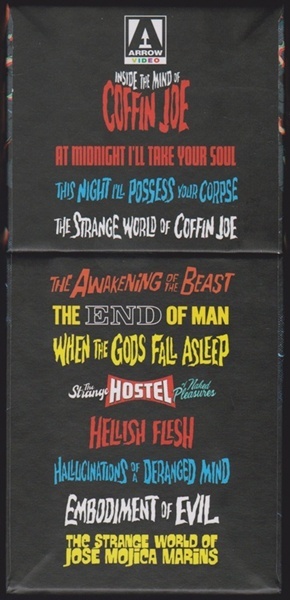 ARROW
VIDEO
INSIDE THE MIND OF
COFFIN JOE
AT MIDNIGHT I'LL TAKE YOUR SOUL
THIS NIGHT I'LL POSSESS YOUR CORPSE
THE STRANGE WORLD OF COFFIN JOE
THE AWAKENING OF THE BEAST
THE END OF MAN
WHEN THE GODS FALL ASLEEP
The Strange HOSTEL of Naked Pleasures
HELLISH FLESH
HALLUCINATIONS OF A DERANGED MIND
EMBODIMENT OF EVIL
THE STRANGE WORLD OF
JOSÉ MOJICA MARINS